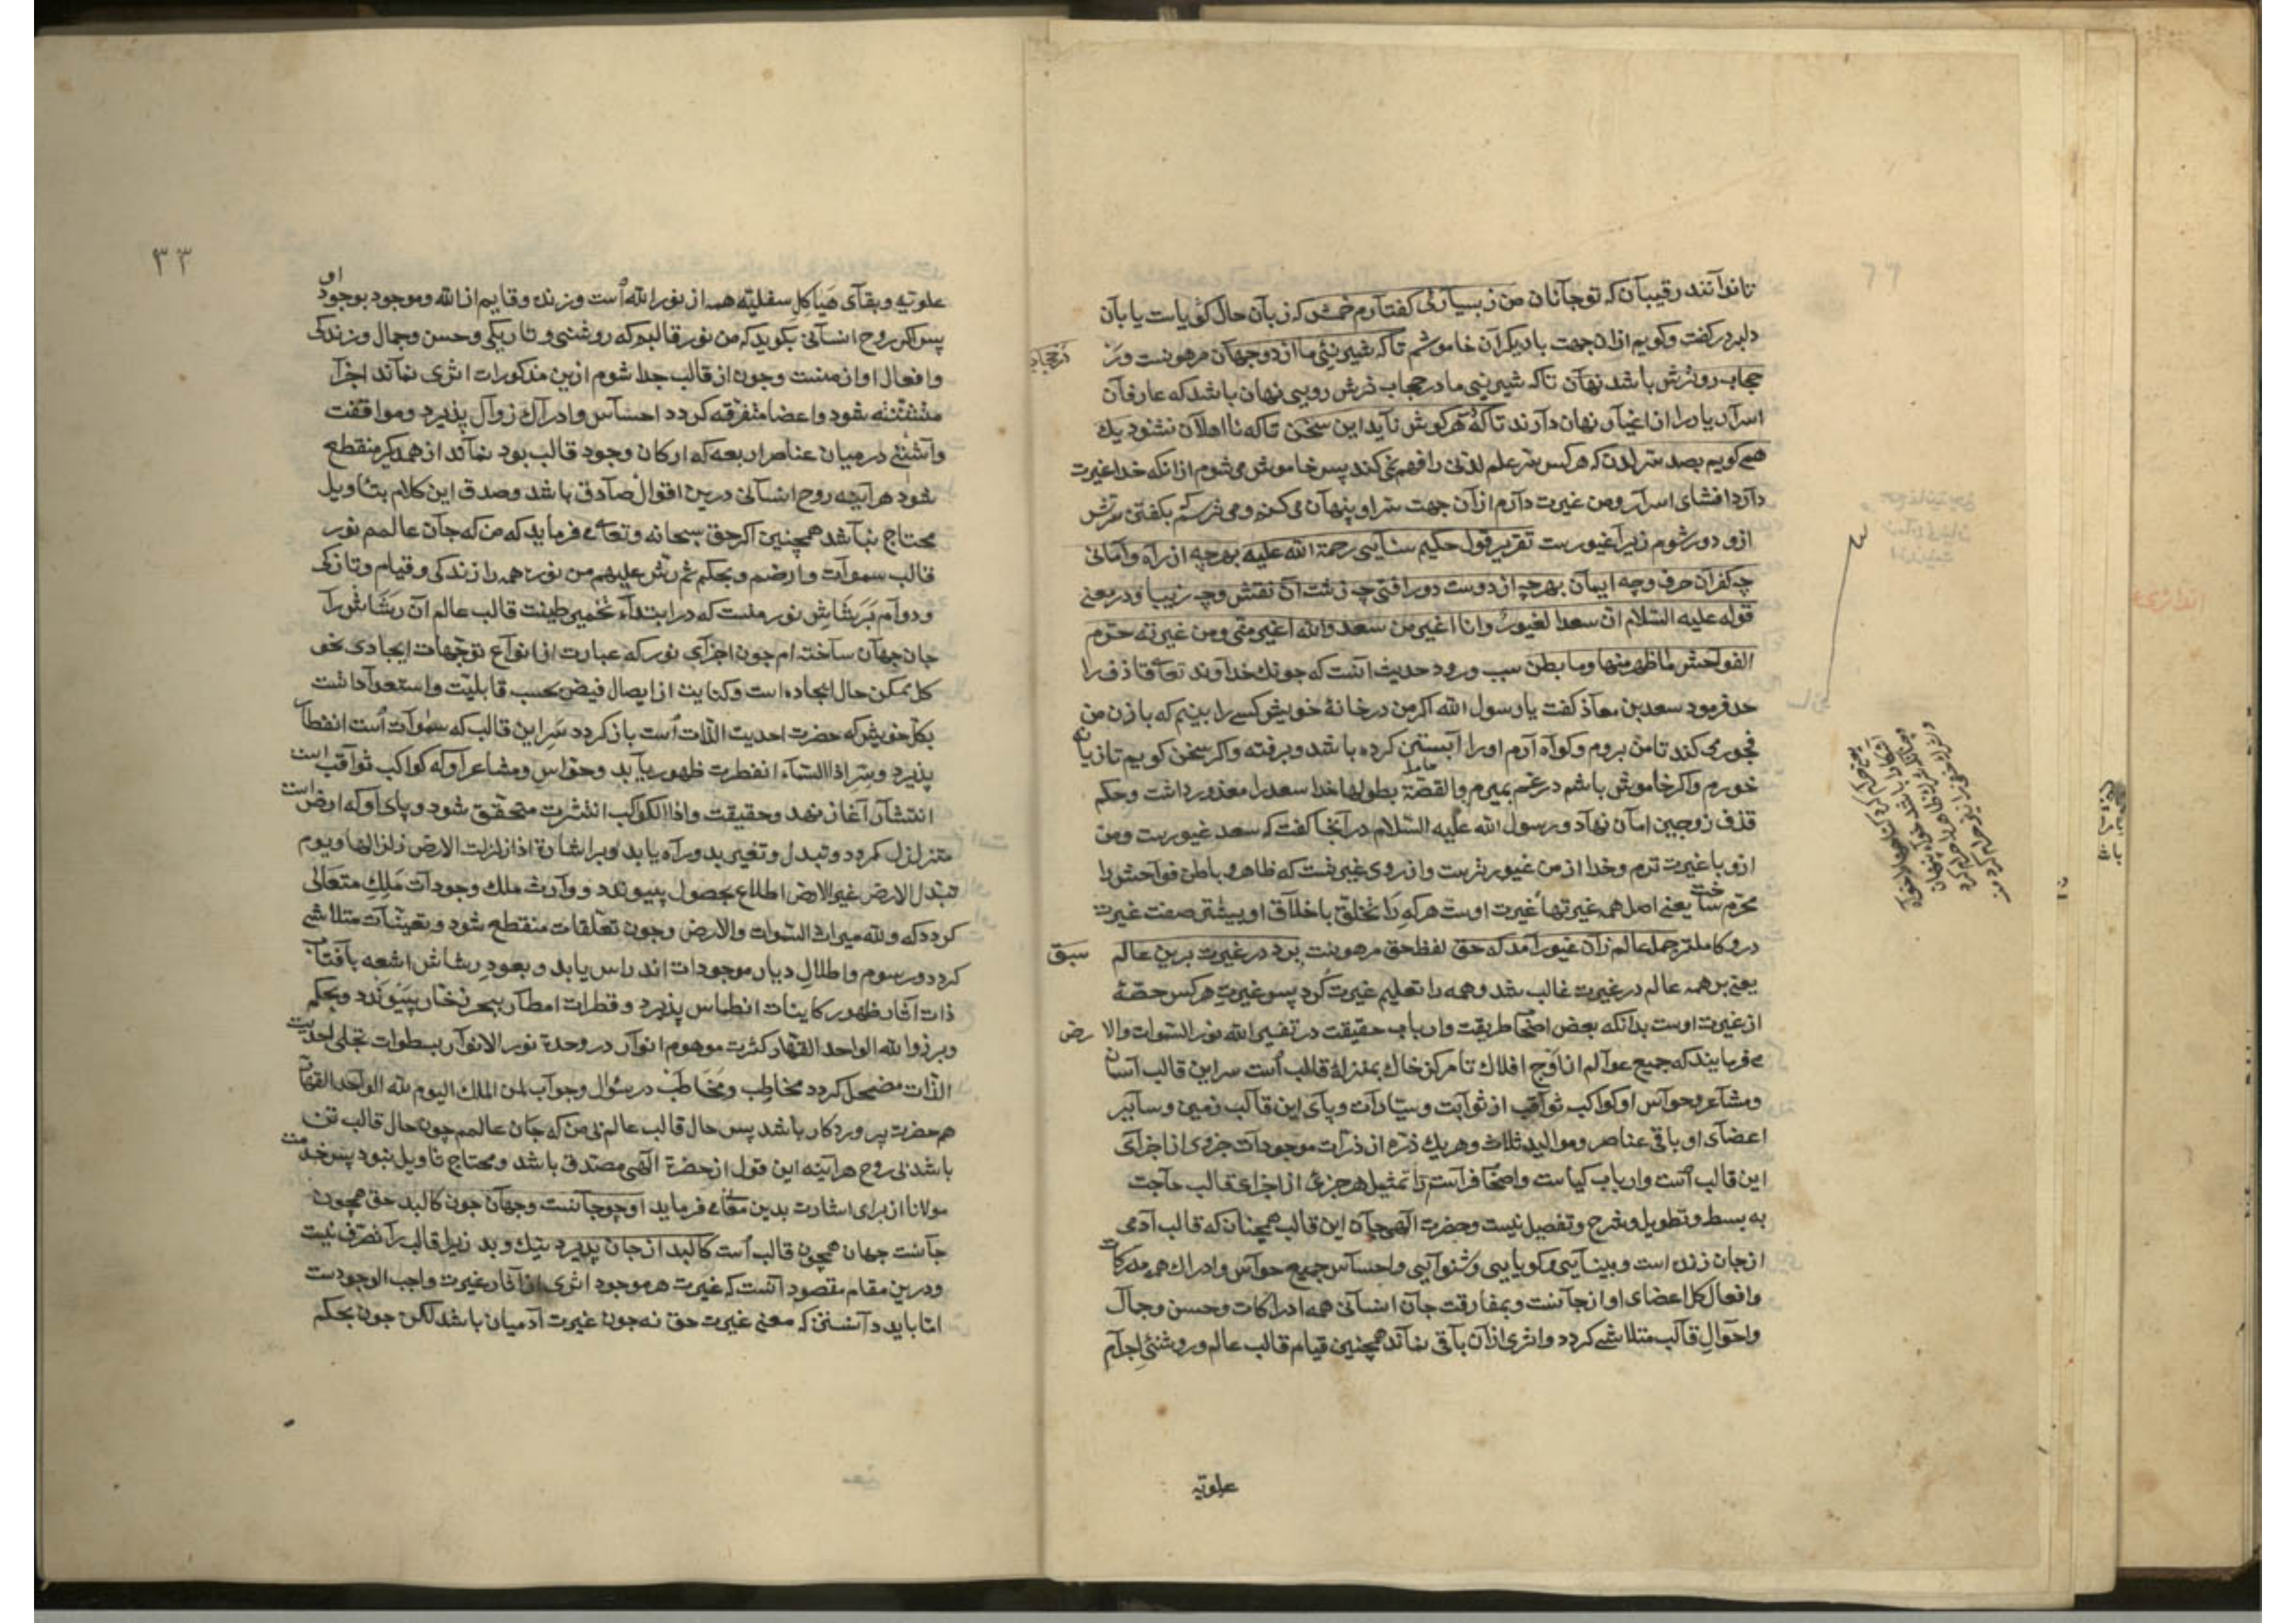 تا نوآنند رقیبآن که تو جآنان من ز بسیآرئ کفتآرم خمش که زبآن حال کویاست یا بآن
دلبر در کفت وکویم ازان جهت با دیکرآن خاموشم تاکه شیرینئ ما از دو جهآن مرهوبست در
حجاب رو ترش باشد نهآن تاکه شیرینی ما در حجاب ترش رویی نهان باشد که عارفآن
اسرآر یار را از اغیآر نهان دآرند تاکه در هر کوش نآید این سخن تاکه نااهلآن نشنود یك
همی کویم بصد سر لدن که هرکس سر علم لدنی را فهم نمی کند پس خاموش می شوم ازانکه خدا غیرت
دآرد افشای اسرآر ومن غیرت دآرم ازآن جهت سر او پنهآن می کنم ومی ترسم بکفتن سرش
ازو دور شوم زیرآ غیورست تقریر قول حکیم سنآیی رحمة الله علیه بهرچه از رآه وآمانی
چه کفر آن حرف وچه ایمآن بهرچه از دوست دور افتی چه زشت آن نقش وچه زیبا ودر معنی
قوله علیه السّلام انّ سعدا لغیورٌ وانا اغیر من سعد والله اغیر منّی ومن غیرته حرّم
الفواحش ماظهر منها ومابطن سبب ورود حدیث آنست که چونك خداوند تعآلی قاذف را
حد فرمود سعد بن معآذ کفت یا رسول الله اکر من در خانهٔ خویش کسے را بینم که با زن من
فجور می کند تا من بروم وکوآه آرم او را آبستن کرده باشد وبرفته واکر سخن کویم تازیانه
خورم واکر خاموش باشم در غم بمیرم والقصّة بطولها خدا سعد را معذور داشت وحکم
قذف زوجین امآن نهآد ورسول الله علیه السّلام درآنجا کفت که سعد غیورست ومن
ازو با غیرت ترم وخدا از من غیورترست واز روی غیرتست که ظاهر وباطن فوآحش را
محرّم ساخت یعنی اصل همه غیرتها غیرت اوست هرکه را تخلّق باخلآق او بیشتر صفت غیرت
درو کاملتر جمله عالم زآن غیور آمد که حق لفظ حق مرهوبنت برد در غیرت برین عالم سبق
یعنی بر همه عالم در غیرت غالب شد وهمه را تعلیم غیرت کرد پس غیرت هر کس حصّهٔ
از غیرت اوست بدانکه بعض اصحآ طریقت وارباب حقیقت در تفسیر الله نور السّموات والارض
می فرمایند که جمیع عوآلم از اوج افلاك تا مرکز خاك بمنزلهٔ قالب است سر این قالب آسمان
ومشاعر وحوآس او کواکب ثوآقب از ثوآبت وسیّارآت وپآی این قآلب زمین وسآیر
اعضآی او باقی عناصر وموالید ثلاث وهر یك ذرّه از ذرّات موجودآت جزوی از اجزآی
این قالب است وارباب کیاست واصحآ فرآست را تمثیل هر جزئ از اجزای قالب حآجت
به بسط وتطویل وشرح وتفصیل نیست وحضرت الهی جآن این قالب همچنان که قالب آدمی
از جان زنده است وبینآیی وکویایی وشنوآیی واحسآس جمیع حوآس وادراك همه مدرکات
وافعال کل اعضای او از جآنست وبمفارقت جآن انسآنی همه ادراکات وحسن وجمآل
واحوال قآلب متلاشے کردد واثری ازآن بآقی نمآند همچنین قیام قالب عالم وروشنئ اجرآم
علویّه
٣٣
علویّه وبقآی هَیَاکِل سفلیّه همه از نور الله است وزنده وقایم از الله وموجود بوجود او
پس اکر روح انسآنی بکوید که من نور قالبم که روشنی وتاریکی وحسن وجمال وزندکی
وافعال او از منست وچون از قالب جدا شوم ازین مذکورات اثری نمآند اجزآ
متشتّته شود واعضا متفرّقه کردد احسآس وادرآك زوآل پذیرد وموافقت
وآشنئی در میان عناصر اربعه که ارکان وجود قالب بود نمآند از همدیکر منقطع
شود هرآینه روح انسآنی درین اقوال صآدق باشد وصدق این کلام بتأویل
محتاج نبآشد همچنین اکر حق سبحانه وتعالے فرماید که من که جآن عالمم نور
قالب سموآت وارضم وبحکم ثم رشّ علیهم من نوره همه را زندکی وقیام وتازکی
ودوآم بَرَشَاشِ نور منست که در ابتدآء تخمیر طینت قالب عالم آن رَشَاش را
جان جهآن ساخته ام چون اجزآی نور که عبارت از انوآع توجّهات ایجادی نحو
کل ممکن حال ایجاده است وکنایت از ایصال فیض بحسب قابلیّت واستعدآدآتست
بکل خویش که حضرت احدیت الذّات است باز کردد سَرِ این قالب که سموآت است انفطآر
پذیرد وسِرّ اذا السّمآء انفطرت ظهور یآبد وحوآس ومشاعر او که کواکب ثوآقب است
انتشآر آغاز نهد وحقیقت واذا الکوآکب انتثرت متحقّق شود وپای او که ارض است
متزلزل کردد وتبدل وتغیر بدو رآه یابد وبر اشارة اذا زلزلت الارض زلزالها ویوم
تبدل الارض غیر الارض اطلاع بحصول پیوندد ووآرث ملك وجودآت مَلِكِ متعَالی
کردد که ولله میراث السّموات والارض وچون تعلّقات منقطع شود وتعیّنات متلاشے
کردد ورسوم واطلالِ دیار موجودات اندراس یابد وبعودِ رشاش اشعه بآفتآب
ذات آثار ظهور کاینات انطماس پذیرد وقطرات امطآر ببحر زخّار پیوندد وبحکم
وبرزوا لله الواحد القهّار کثرت موهوم انوآر در وحدة نور الانوآر بسطوات تجلّی احدیت
الذّات مضمحل کردد مخاطِب ومخاطَب در سؤال وجوآب لمن الملك الیوم لله الوآحد القهآر
هم حضرت پروردکار باشد پس حال قالب عالم بی من که جآن عالمم چون حال قالب تن
باشد بی روح هرآینه این قول از حضرة الٓهی مصدّق باشد ومحتاج تاویل نبود پس خدمت
مولانا از برای اشارت بدین معنی می فرماید او چو جآنست وجهآن چون کالبد حق همچون
جآنست جهان همچون قالب است کالبد از جان پذیرد نیك وبد زیرا قالب رآ تصرّف نیست
ودرین مقام مقصود آنست که غیرت هر موجود اثری از آثار غیرت واجب الوجودست
امّا باید دآنستن که معنی غیرت حق نه چون غیرت آدمیان باشد لکن چون بحکم